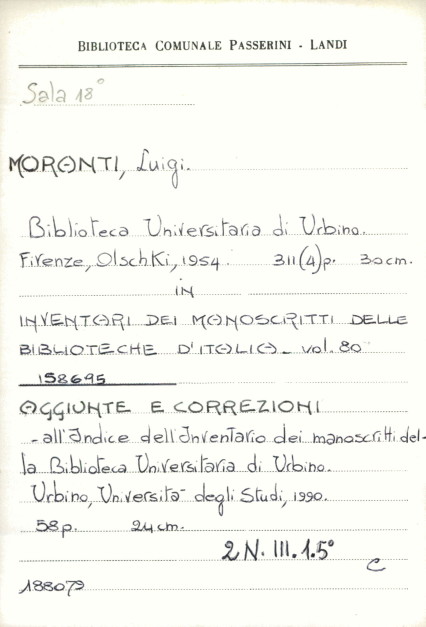 BIBLIOTECA COMUNALE PASSERINI - LANDI
Sala 18°
MORANTI, Luigi.
Biblioteca Universitaria di Urbino.
Firenze, Olschki, 1954. 311(4)p. 30cm.
IN
INVENTARI DEI MANOSCRITTI DELLE
BIBLIOTECHE D'ITALIA - vol. 80
158695
AGGIUNTE E CORREZIONI
- all'Indice dell'Inventario dei manoscritti del-
la Biblioteca Universitaria di Urbino.
Urbino, Università degli Studi, 1990.
58p. 24cm.
2 N. III. 1.5°
C
188079